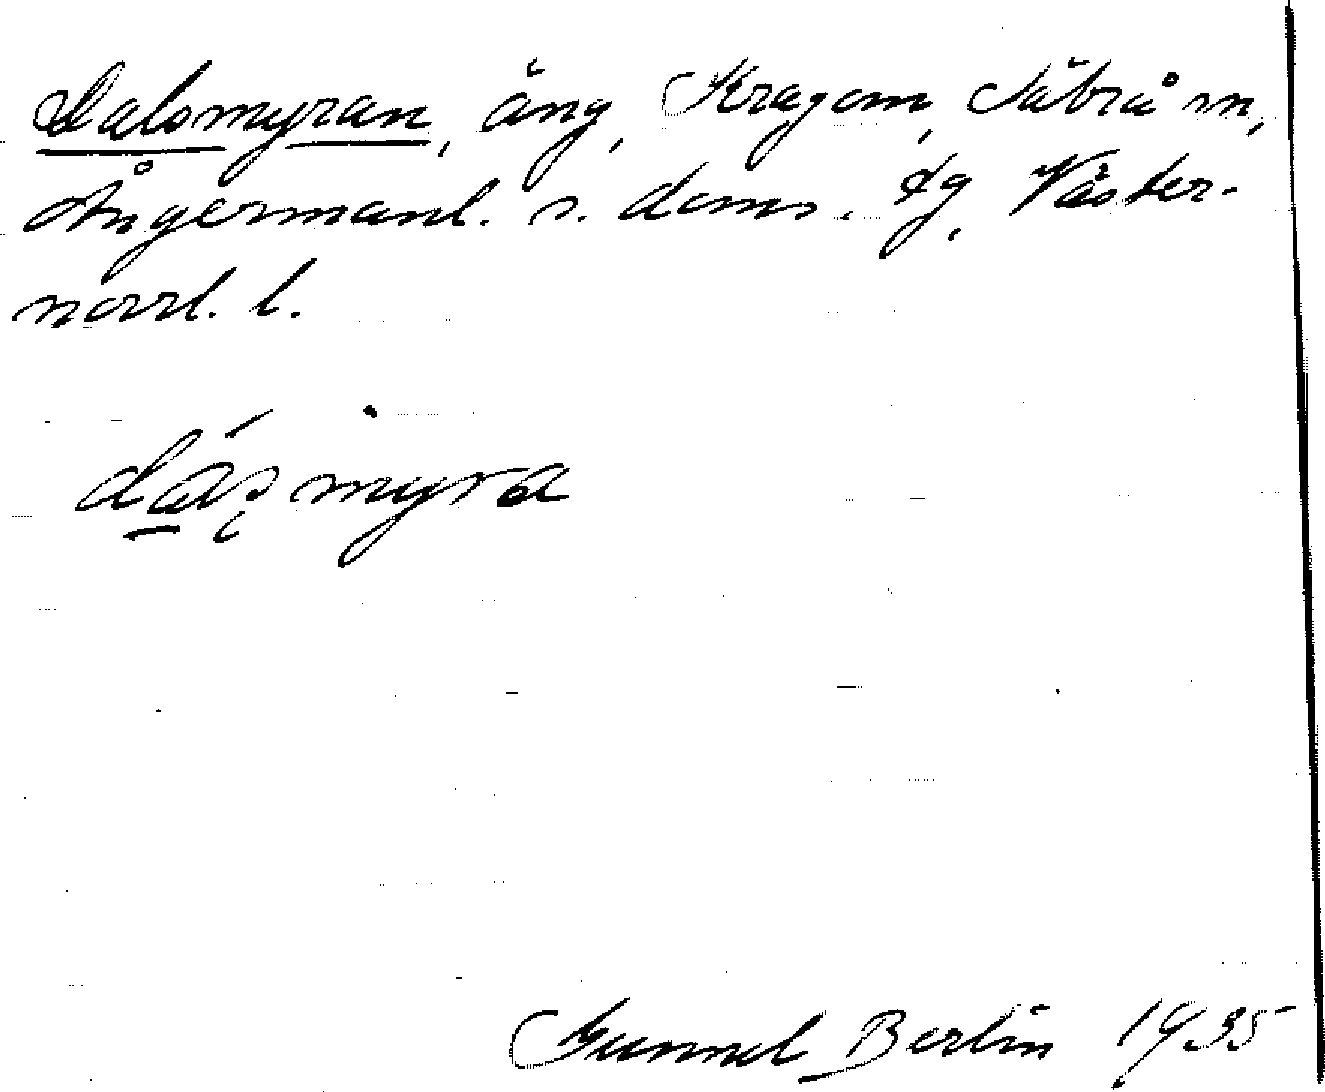 Dalomyran, äng, Kragom, Säbrå sn,
Ångermanl. s. doms. dg, Väster-
norrl. l.
myra
Gunnel Berlin 1935